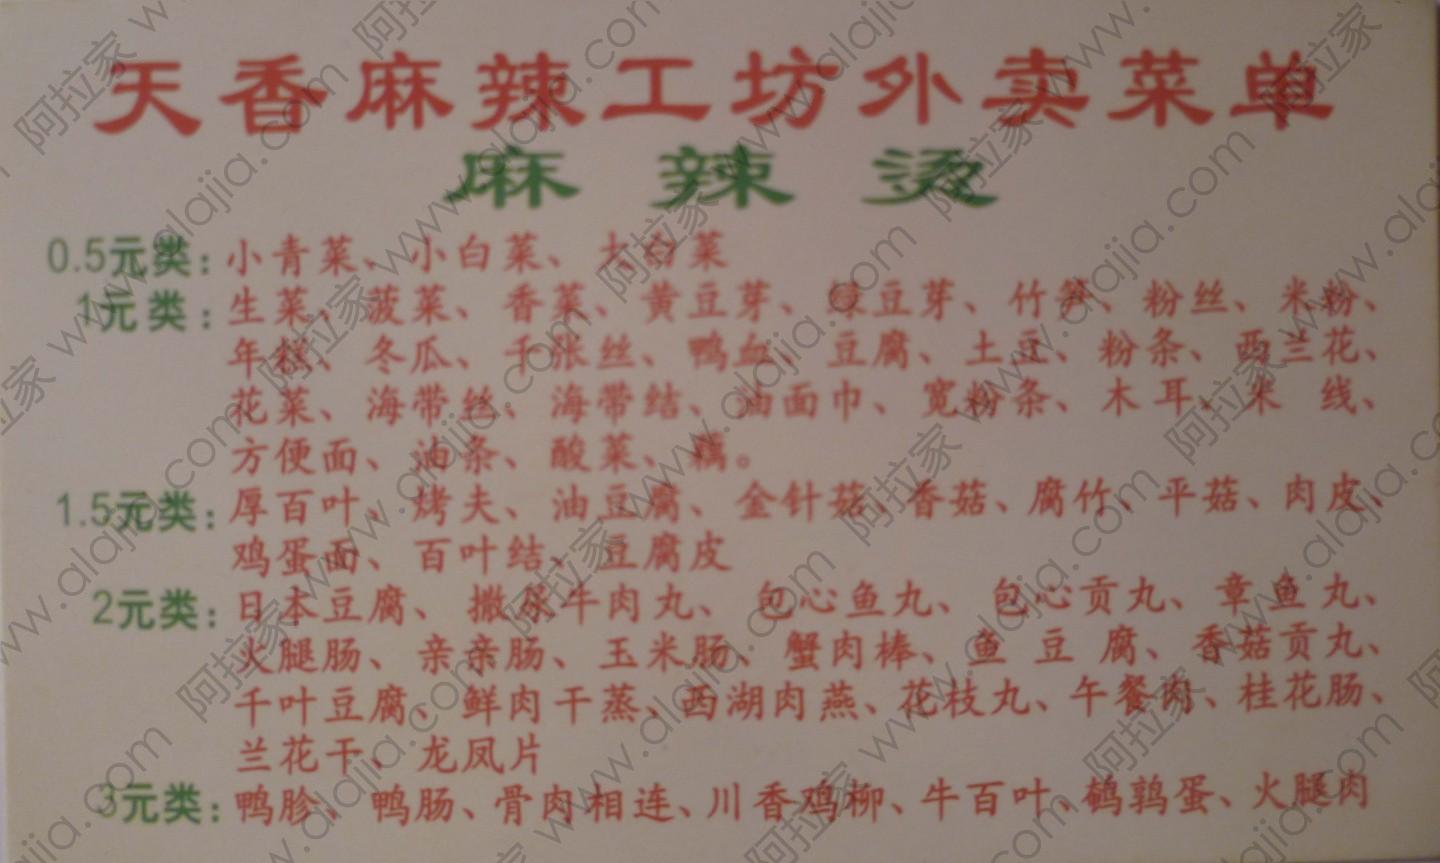 天香麻辣工坊外卖菜单
麻辣烫
0.5元类：小青菜、小白菜、大白菜
1元类：生菜、菠菜、香菜、黄豆芽、绿豆芽、竹笋、粉丝、米粉、
年糕、冬瓜、千张丝、鸭血、豆腐、土豆、粉条、西兰花、
花菜、海带丝、海带结、油面巾、宽粉条、木耳、米线、
方便面、油条、酸菜、藕。
1.5元类：厚百叶、烤夫、油豆腐、金针菇、香菇、腐竹、平菇、肉皮、
鸡蛋面、百叶结、豆腐皮
2元类：日本豆腐、撒尿牛肉丸、包心鱼丸、包心贡丸、章鱼丸、
火腿肠、亲亲肠、玉米肠、蟹肉棒、鱼豆腐、香菇贡丸、
千叶豆腐、鲜肉干蒸、西湖肉燕、花枝丸、午餐肉、桂花肠、
兰花干、龙凤片
3元类：鸭胗、鸭肠、骨肉相连、川香鸡柳、牛百叶、鹌鹑蛋、火腿肉
阿拉家 www.alajia.com